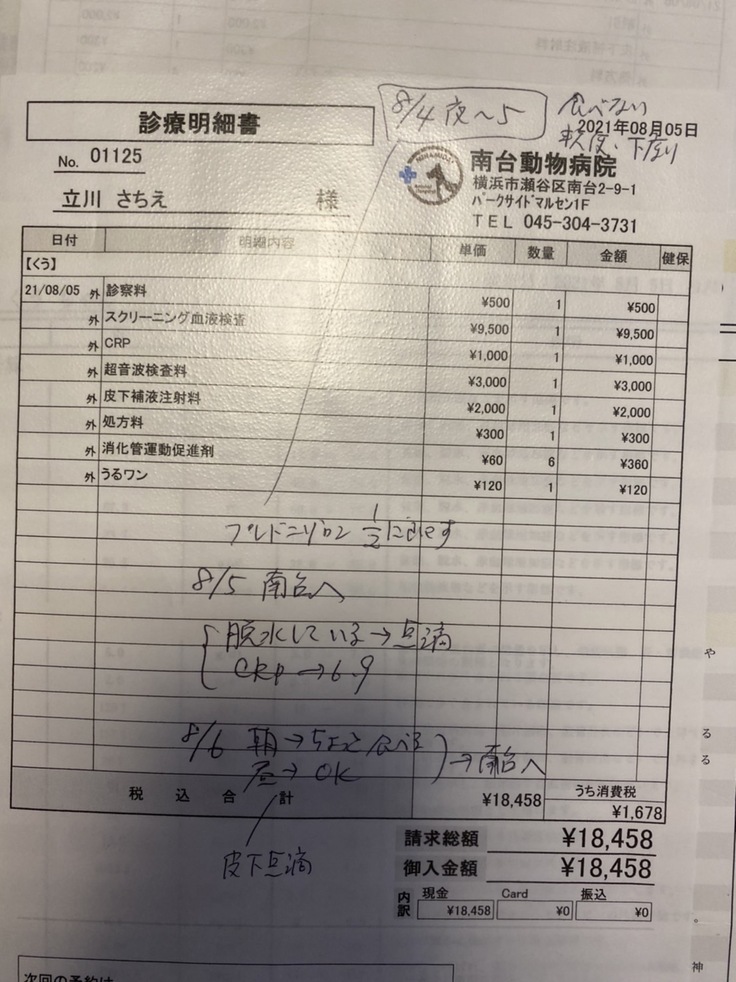 8/4 夜~5 食べない
軟便、下痢
診療明細書
2021年08月05日
No. 01125
立川 さちえ 様
南台動物病院
横浜市瀬谷区南台2-9-1
パークサイドマルセン1F
TEL 045-304-3731
日付 明細内容 単価 数量 金額 健保
【くう】
21/08/05 外 診察料 ¥500 1 ¥500
外 スクリーニング血液検査 ¥9,500 1 ¥9,500
外 CRP ¥1,000 1 ¥1,000
外 超音波検査料 ¥3,000 1 ¥3,000
外 皮下補液注射料 ¥2,000 1 ¥2,000
外 処方料 ¥300 1 ¥300
外 消化管運動促進剤 ¥60 6 ¥360
外 うるワン ¥120 1 ¥120
プレドニゾロン 1/2に戻す
8/5 南台へ
脱水している→点滴
CRP→6.9
8/6 朝→ちょっと食べる
昼→OK →南台へ
税込合計 ¥18,458 うち消費税 ¥1,678
皮下点滴
請求総額 ¥18,458
御入金額 ¥18,458
内訳 現金 ¥18,458 Card ¥0 振込 ¥0
や
る
る
。
神
次回の予約は